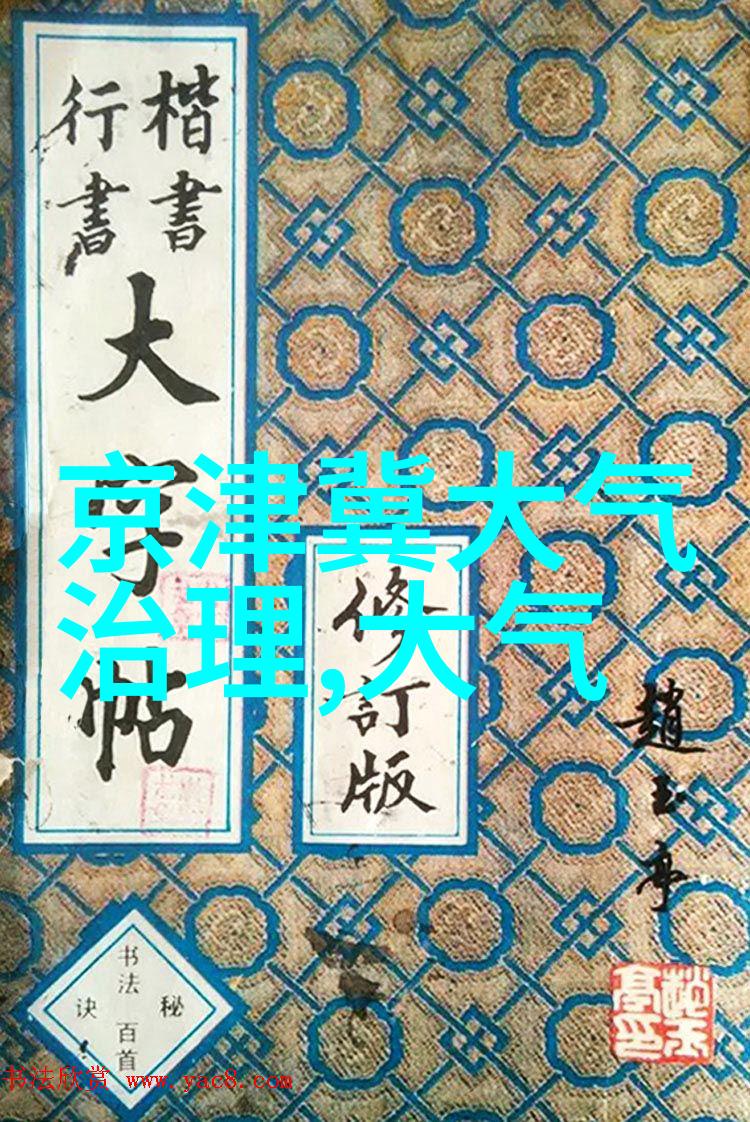 楷書
行書
大字帖
修訂版
趙玉亭
京津冀大气
治理,大气
书法百首
秘诀
书法欣赏 www.yac8.com